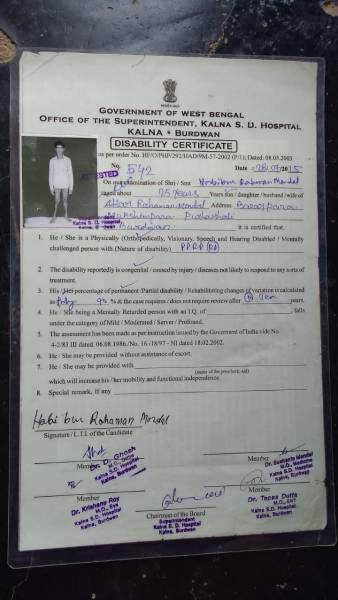 GOVERNMENT OF WEST BENGAL
OFFICE OF THE SUPERINTENDENT, KALNA S. D. HOSPITAL
KALNA • BURDWAN
DISABILITY CERTIFICATE
as per order No. HF/O/PHP/292/HAD/9M-57-2002 (P/1); Dated: 08.05.2003
ATTESTED
No. 542
Date 28/07/2015
On our examination of Shri / Smt Habibur Rahaman Mondal
aged about 25 Years son / daughter/husband / wife of
Rahaman Mondal Address
Burdwan it is certified that
1. He / She is a Physically (Orthopedically, Visionary, Speech and Hearing Disabled / Mentally
challenged person with (Nature of disability) PPRP
2. The disability reportedly is congenital / caused by injury / diseases not likely to respond to any sorts of
treatment.
3. His / Her percentage of permanent /Partial disability / Rehabilitating changes of variation is calculated
as 90 % & the case requires / does not require review after years.
4. He / She being a Mentally Retarded person with an I.Q. of falls
under the category of Mild / Moderated / Server / Profound.
5. The assessment has been made as per instruction issued by the Government of India vide No.
4-2/83 III dated. 06.08.1986 / No. 16.-18/97 - NI dated 18.02.2002.
6. He / She may be provided without assistance of escort.
7. He / She may be provided with
(name of the prosthetic aid)
which will increase his / her mobility and functional independence.
8. Special remark, if any
Habibur Rahaman Mondal
Signature / L.T.I. of the Candidate
Member
Ghosh
Kalna S.D. Hospital
Kalna, Burdwan
Member
Dr. Susanta Mandal
Kalna S.D. Hospital
Kalna, Burdwan
Member
Dr. Krishana Roy
M.O., Eye
Kalna S.D. Hospital
Kalna, Burdwan
Chairman of the Board
Superintendent
Kalna S. D. Hospital
Kalna, Burdwan
Member
Dr. Tapas Dutta
M.O., ENT
Kalna S.D. Hospital
Kalna, Burdwan